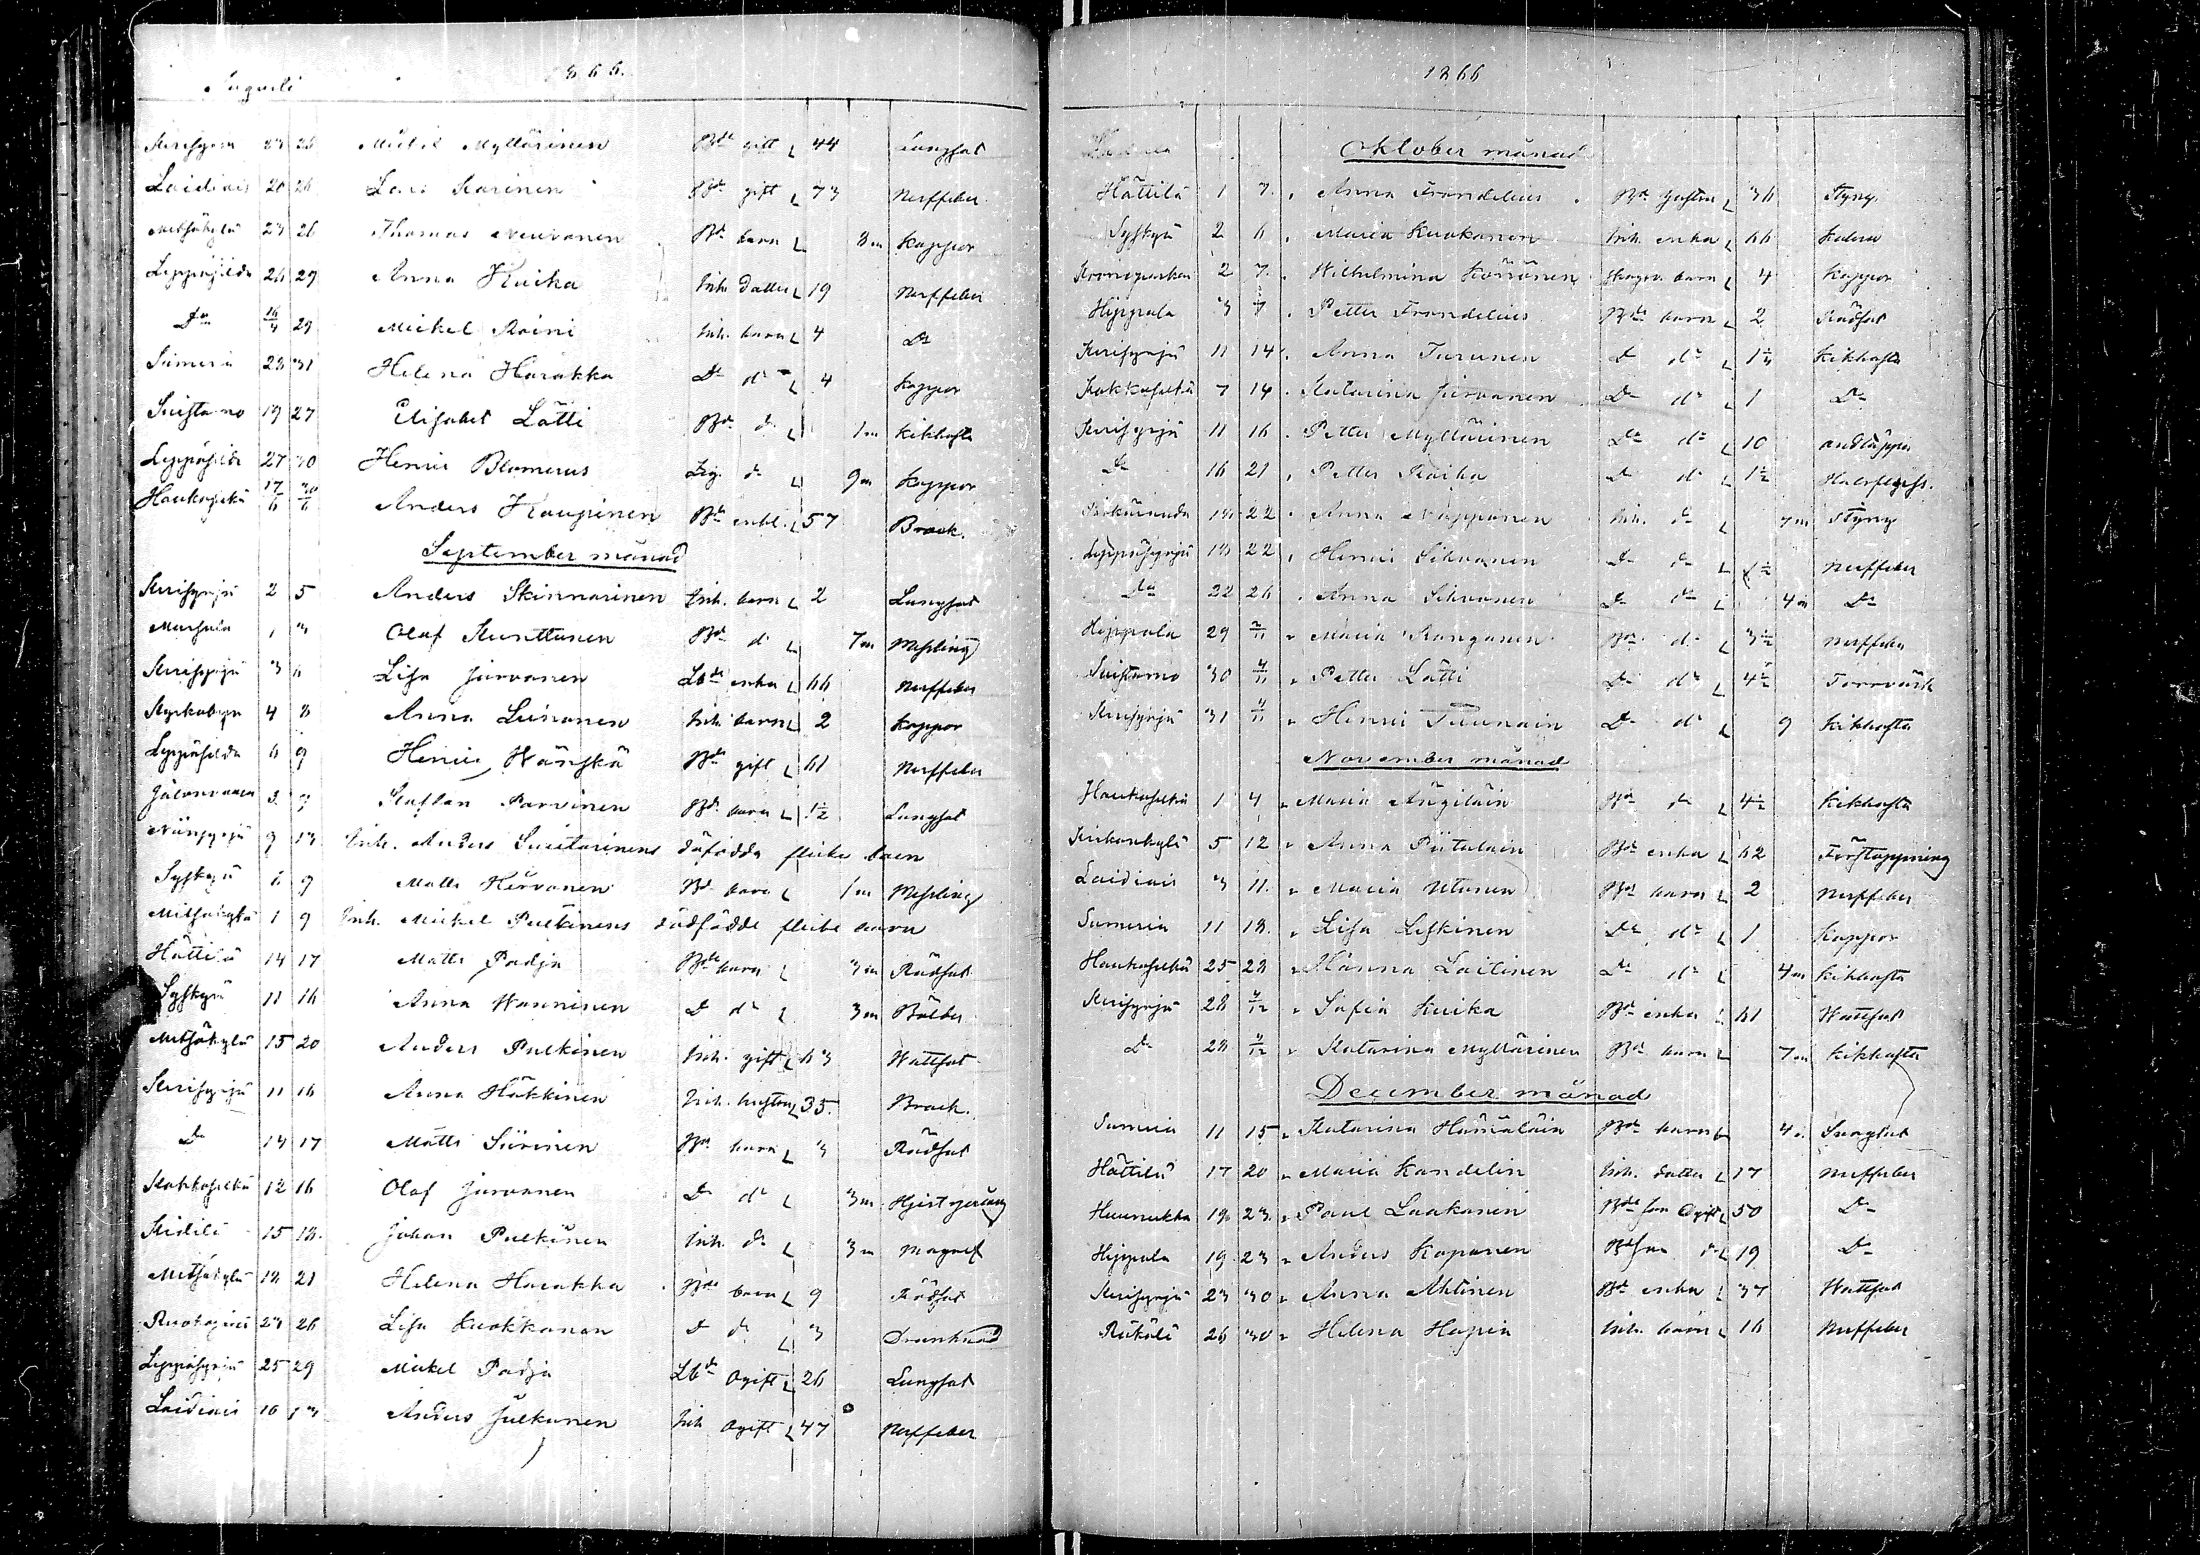 Augusti 1866.
23 26 Mickel Myllärinen Bde gift 44 Lungsot
Laidiais 20 26 Lars Karinen Bde gift 73 Nerffeber
Metsäkylä 23 26 Thomas Neuvonen Bde barn 8m Koppor
Leppäselkä 26 29 Anna Kuika Inh. dotter 19 Nerffeber
Do 29 Mickel Roini Inh. barn 4 Do
Sumeria 28 31 Helena Harakka Do do 4 Koppor
Suistamo 19 27 Elisabet Lätti Bde do 1m Kikhosta
Leppäselkä 27 30 Henric Blomerus do 9m Koppor
Haukaselkä 17/6 20/6 Anders Kaupinen Bde enkl. 57 Brock.
September månad
Kirisyrjä 2 5 Anders Skinnarinen Inh. barn 2 Lungsot
1 3 Olaf Kunttunen Bde do 7m Messling
Kirisyrjä 3 6 Lisa Jurvanen Lbde enka 66 Nerffeber
4 8 Anna Leinonen Inh barn 2 Koppor
Leppäselkä 6 9 Henric Wänskä Bde gift 61 Nerffeber
Jalovaara 3 9 Staffan Parvinen Bde barn 1/2 Lungsot
9 13 Inh. Anders Suistarinens döfödda flicke barn
Syskyä 6 9 Matts Hirvonen Bd barn 1m Messling
Metsäkylä 1 9 Inh. Mickel Pulkinens dödfödde flicke barn
Hättilä 14 17 Matts Padja Bde barn 3m Rödsot
Syskyä 11 16 Anna Wanninen D do 3m Bölder
Metsäkylä 15 20 Anders Pulkinen Inh. gift 63 Wattsot
Kirisyrjä 11 16 Anna Häkkinen Inh. hustru 35. Brock.
Do 14 17 Matts Siirinen Bde barn 3 Rödsot
Kokkaselkä 12 16 Olaf Jurvanen Do do 3m
15 18. Johan Pulkinen Inh. do 3m Magref
Metsäkylä 18 21 Helena Harakka Bde barn 9 Rödsot
23 26 Lisa Kuokkanen D do 3 Drunknad
Leppäsyrjä 25 29 Mickel Padja Lbde Ogift 26 Lungsot
Laidiais 10 13 Anders Julkunen Inh Ogift 47 Nerffeber
1866
Oktober månad
Hättilä 1 7. Anna Frondelius Bde hustru 36 Styng.
Syskyä 2 6 Maria Kuokanen Inh. enka 66 Kolera
Kronoparken 2 7. Wilhelmina Könönen barn 4 Koppor
Hippula 3 7 Petter Frondelius Bde barn 2 Rödsot
Kirisyrjä 11 14 Anna Turunen D do 1 1/4 Kikhosta
Kokkaselkä 7 14 Katarina Jurvanen Do do 1 Do
Kirisyrjä 11 16 Petter Myllärinen Do do 10 andtäppa
Do 16 21 Petter Kuika D do 1 1/2
18 22 Anna Nuppanen Inh. do 7m Styng
Leppäsyrjä 18 22 Henric Sihvonen Do do 1/2 Nerffeber
Do 22 26 Anna Sihvonen Do do 4m Do
Hippula 29 2/11 Maria Kanganen Bde do 3 1/2 Nerffeber
Suistamo 30 4/11 Petter Lätti Do do 4 1/2 Torrvärk
Kirisyrjä 31 4/11 Henric Tuunain Do do 9 Kikhosta
November månad
Haukaselkä 1 4 Maria Äigiläin Bde do 4 1/2 Kikhosta
Kirkonkylä 5 12 Anna Piitulain Bde enka 62 Förstoppning
Laidiais 3 11. Maria Utunen Bde barn 2 Nerffeber
Sumeria 11 18. Lisa Leskinen Do do 1 Koppor
Haukaselkä 25 28 Hanna Laitinen Do do 4m Kikhosta
Kirisyrjä 28 4/12 Sofia Kuika Bde enka 61 Wattsot
Do 28 4/12 Katarina Myllärinen Bde barn 7m Kikhosta
December månad
Sumeria 11 15 Katarina Hämäläin Bde barn 4 Lungsot
Hättilä 17 20 Maria Kandelin Inh. dotter 17 Nerffeber
19. 23. Paul Laakonen Bde son Ogift 50 Do
Hippula 19 23 Anders Koponen Bd son do 19 Do
Kirisyrjä 23 30 Anna Ahtinen Bde enka 37 Wattsot
26 30 Helena Hapia Inh. barn 16 Nerffeber